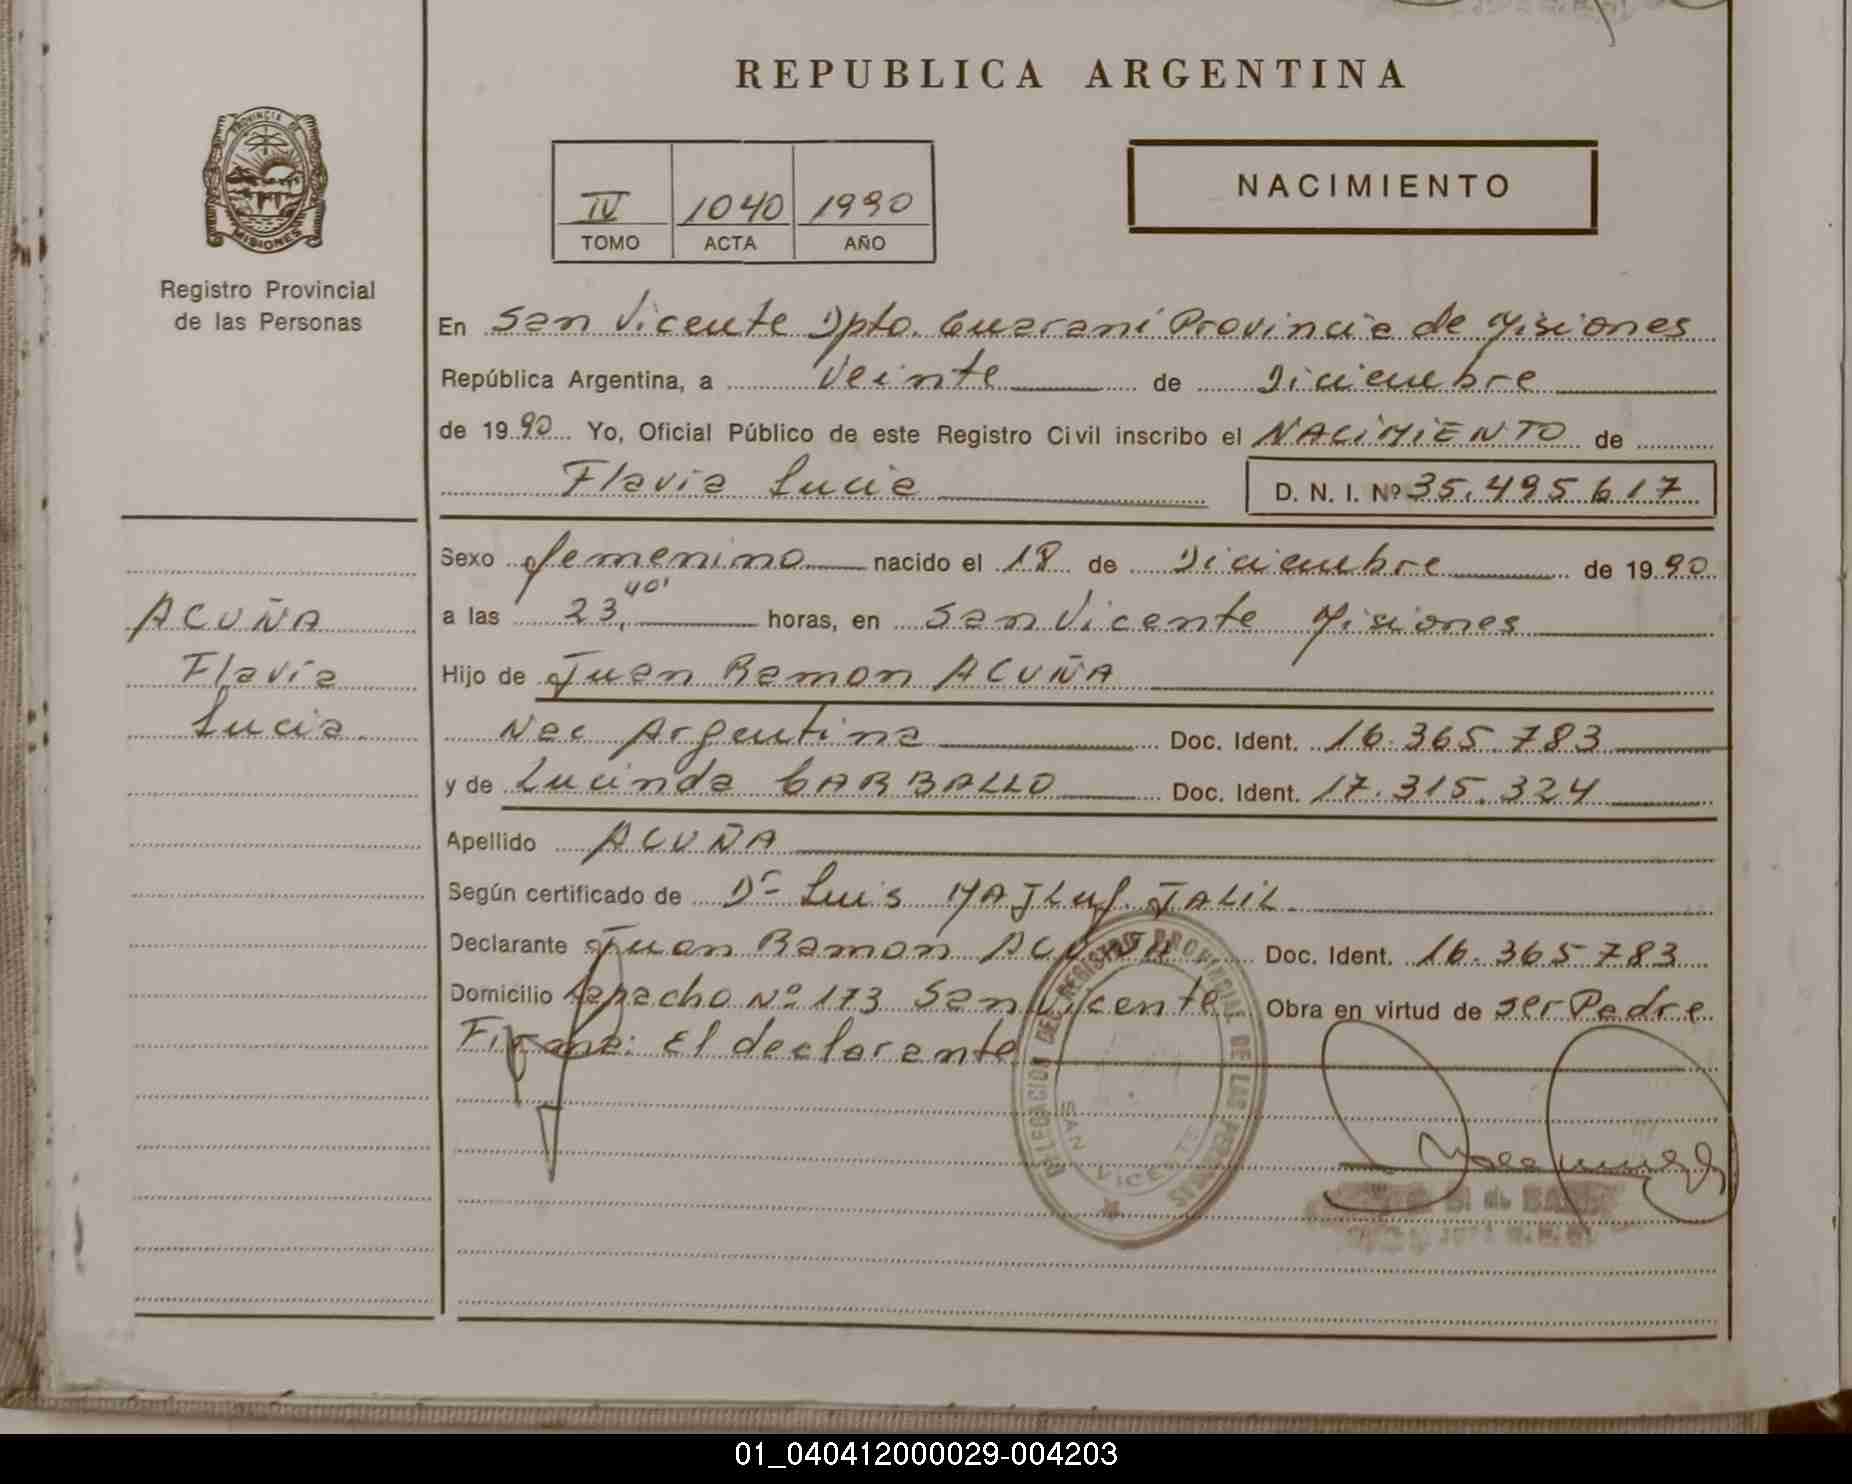 REPUBLICA ARGENTINA
PROVINCIA DE
MISIONES
Registro Provincial
de las Personas
IV 1040 1990
TOMO ACTA AÑO
NACIMIENTO
En San Vicente Dpto. Guarani Provincia de Misiones
República Argentina, a Veinte de Diciembre
de 1990 Yo, Oficial Público de este Registro Civil inscribo el NACIMIENTO de
Flavia Lucia D. N. I. Nº 35.495617
Sexo femenino nacido el 18 de Diciembre de 1990
a las 23,40' horas, en San Vicente Misiones
Hijo de Juan Ramon ACUÑA
Nac Argentina Doc. Ident. 16.365.783
y de Lucinda CARBALLO Doc. Ident. 17.315.324
Apellido ACUÑA
Según certificado de Dr Luis MAJLuf JALIL
Declarante Juan Ramon ACUÑA Doc. Ident. 16.365783
Domicilio Lapacho Nº 173 San Vicente Obra en virtud de ser Padre
Firma: El declarante
ACUÑA
Flavia
Lucia
DELEGACION DEL REGISTRO PROVINCIAL DE LAS PERSONAS
SAN VICENTE
01_040412000029-004203